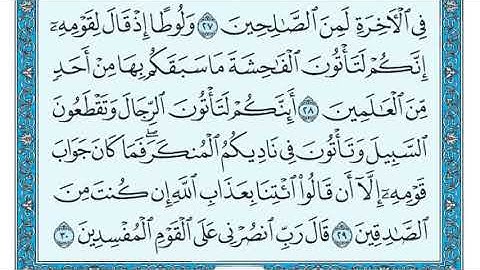 فِي الْأَخِرَةِ لَمِنَ الصَّٰلِحِينَ ٢٧ وَلُوطًا إِذْ قَالَ لِقَوْمِهِۦٓ
إِنَّكُمْ لَتَأْتُونَ الْفَٰحِشَةَ مَا سَبَقَكُم بِهَا مِنْ أَحَدٍ
مِّنَ الْعَٰلَمِينَ ٢٨ أَئِنَّكُمْ لَتَأْتُونَ الرِّجَالَ وَتَقْطَعُونَ
السَّبِيلَ وَتَأْتُونَ فِي نَادِيكُمُ الْمُنكَرَ ۖ فَمَا كَانَ جَوَابَ
قَوْمِهِۦٓ إِلَّآ أَن قَالُوا ائْتِنَا بِعَذَابِ اللَّهِ إِن كُنتَ مِنَ
الصَّٰدِقِينَ ٢٩ قَالَ رَبِّ انصُرْنِي عَلَى الْقَوْمِ الْمُفْسِدِينَ ٣٠